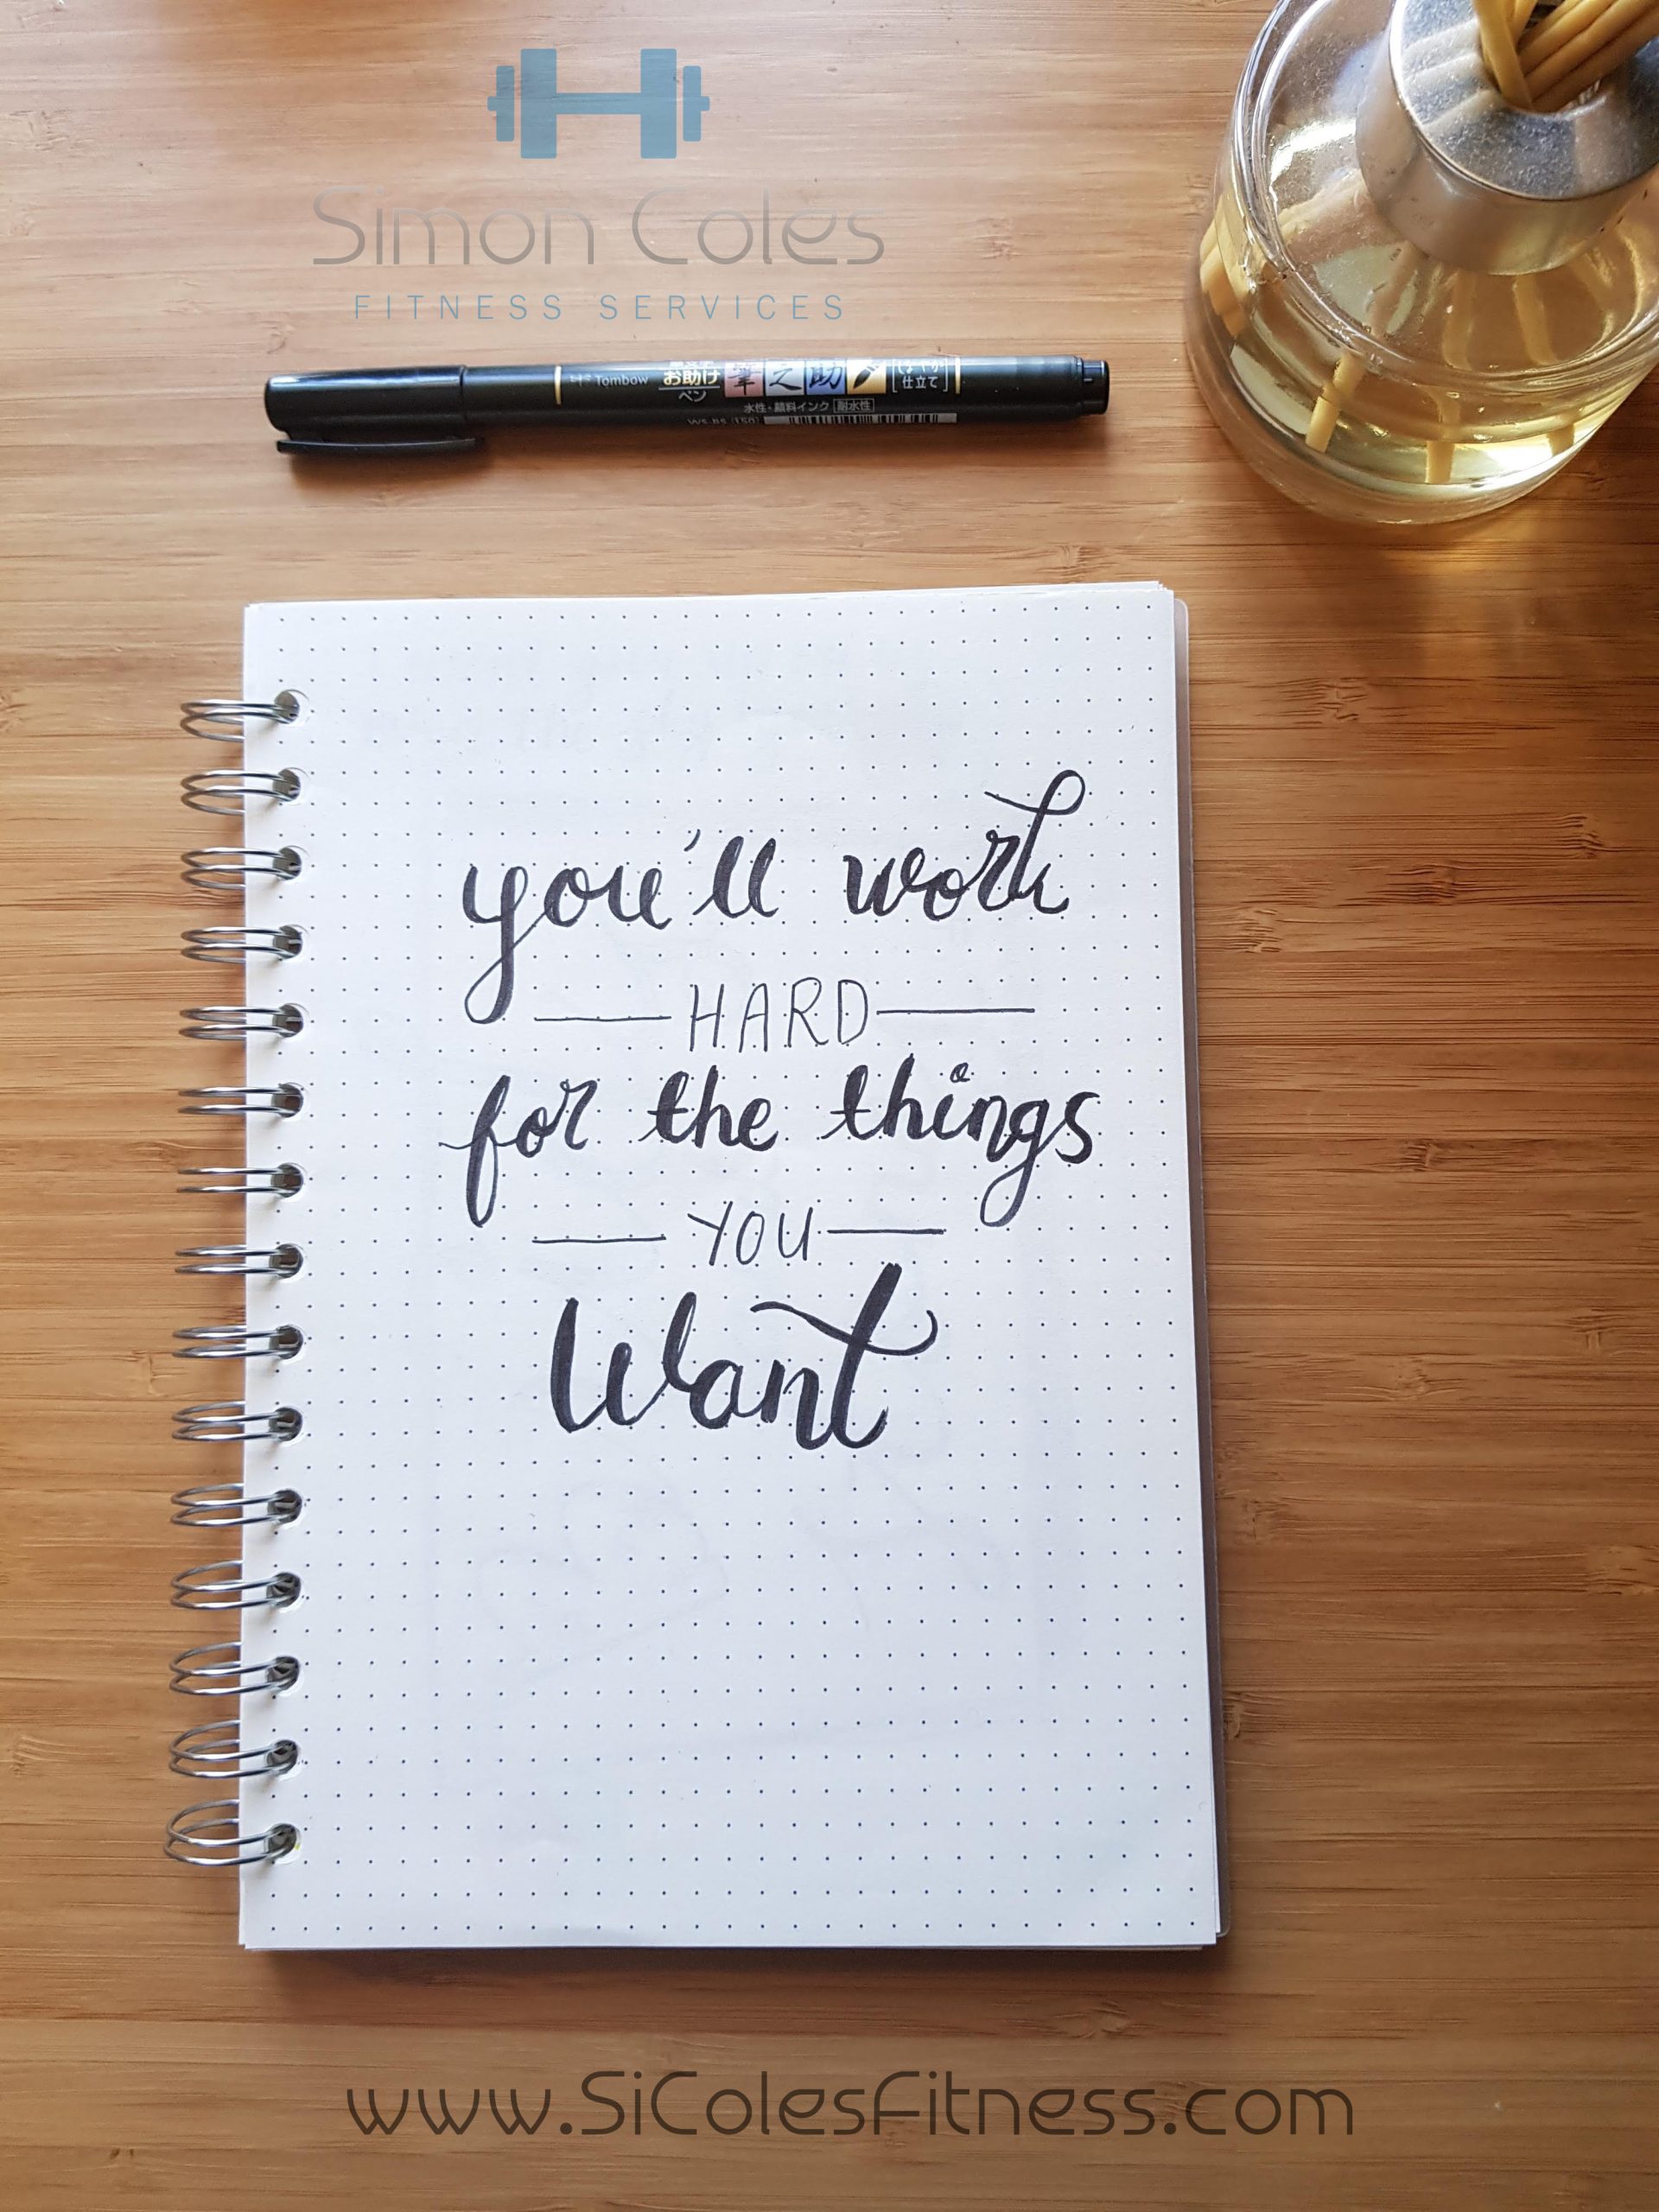 Simon Coles
FITNESS SERVICES
Tombow お助け 筆之助 仕立て
ペン
水性・顔料インク 耐水性
you'll work
HARD
for the things
YOU
Want
www.SiColesFitness.com